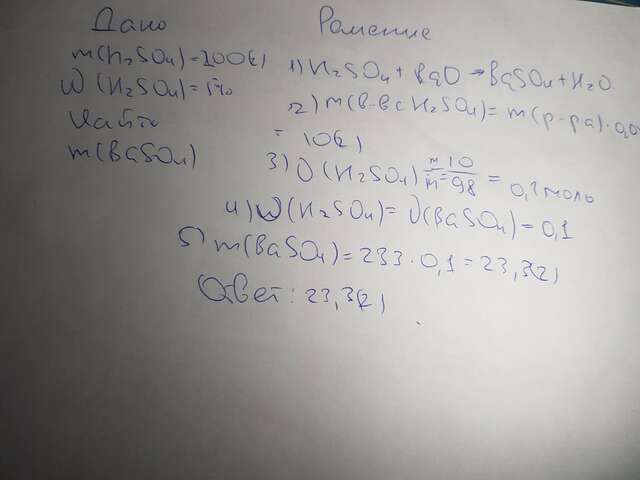 Дано
m(H2SO4)=200(г)
W(H2SO4)=5%
Найти
m(BaSO4)
Решение
1) H2SO4 + BaO → BaSO4 + H2O
2) m(в-ва H2SO4) = m(р-ра)·0,0
= 10(г)
3) ν(H2SO4) m/m = 10/98 = 0,1 моль
4) ν(H2SO4) = ν(BaSO4) = 0,1
5) m(BaSO4) = 233 · 0,1 = 23,3(г)
Ответ: 23,3(г)